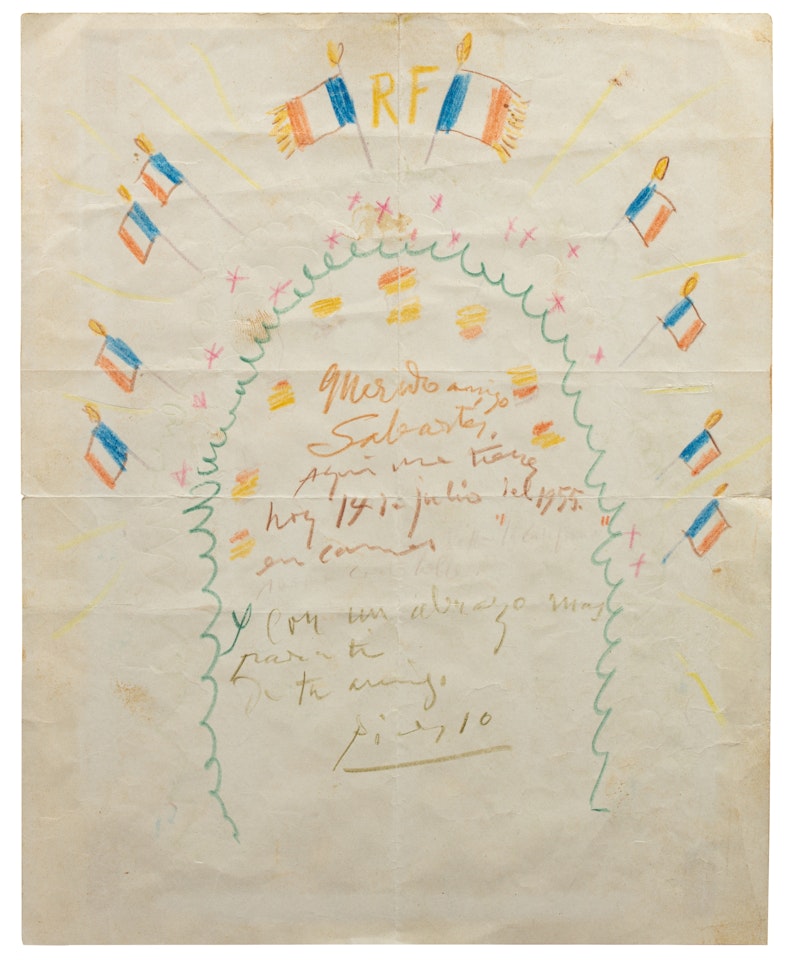 RF
Querido amigo
Sabartés,
aquí me tienes
hoy 14 de julio del 1955.
en cannes
" "
Y con un abrazo mas
para ti
de tu amigo
Picasso